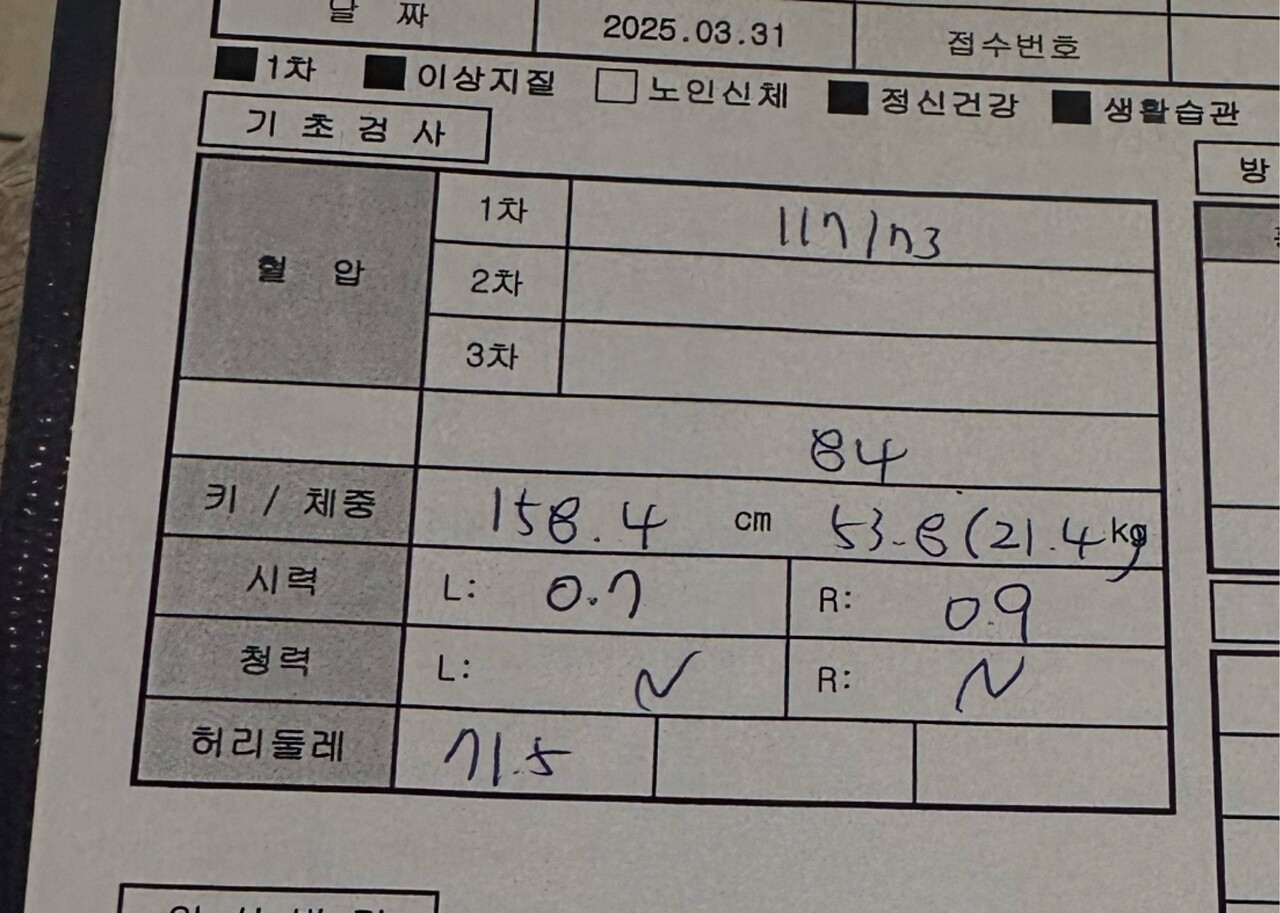 날 짜 2025.03.31 접수번호
■ 1차 ■ 이상지질 □ 노인신체 ■ 정신건강 ■ 생활습관
기 초 검 사
방
혈 압
1차 117/73
2차
3차
84
키 / 체중 158.4 cm 53.8(21.4kg)
시력 L: 0.7 R: 0.9
청력 L: N R: N
허리둘레 71.5